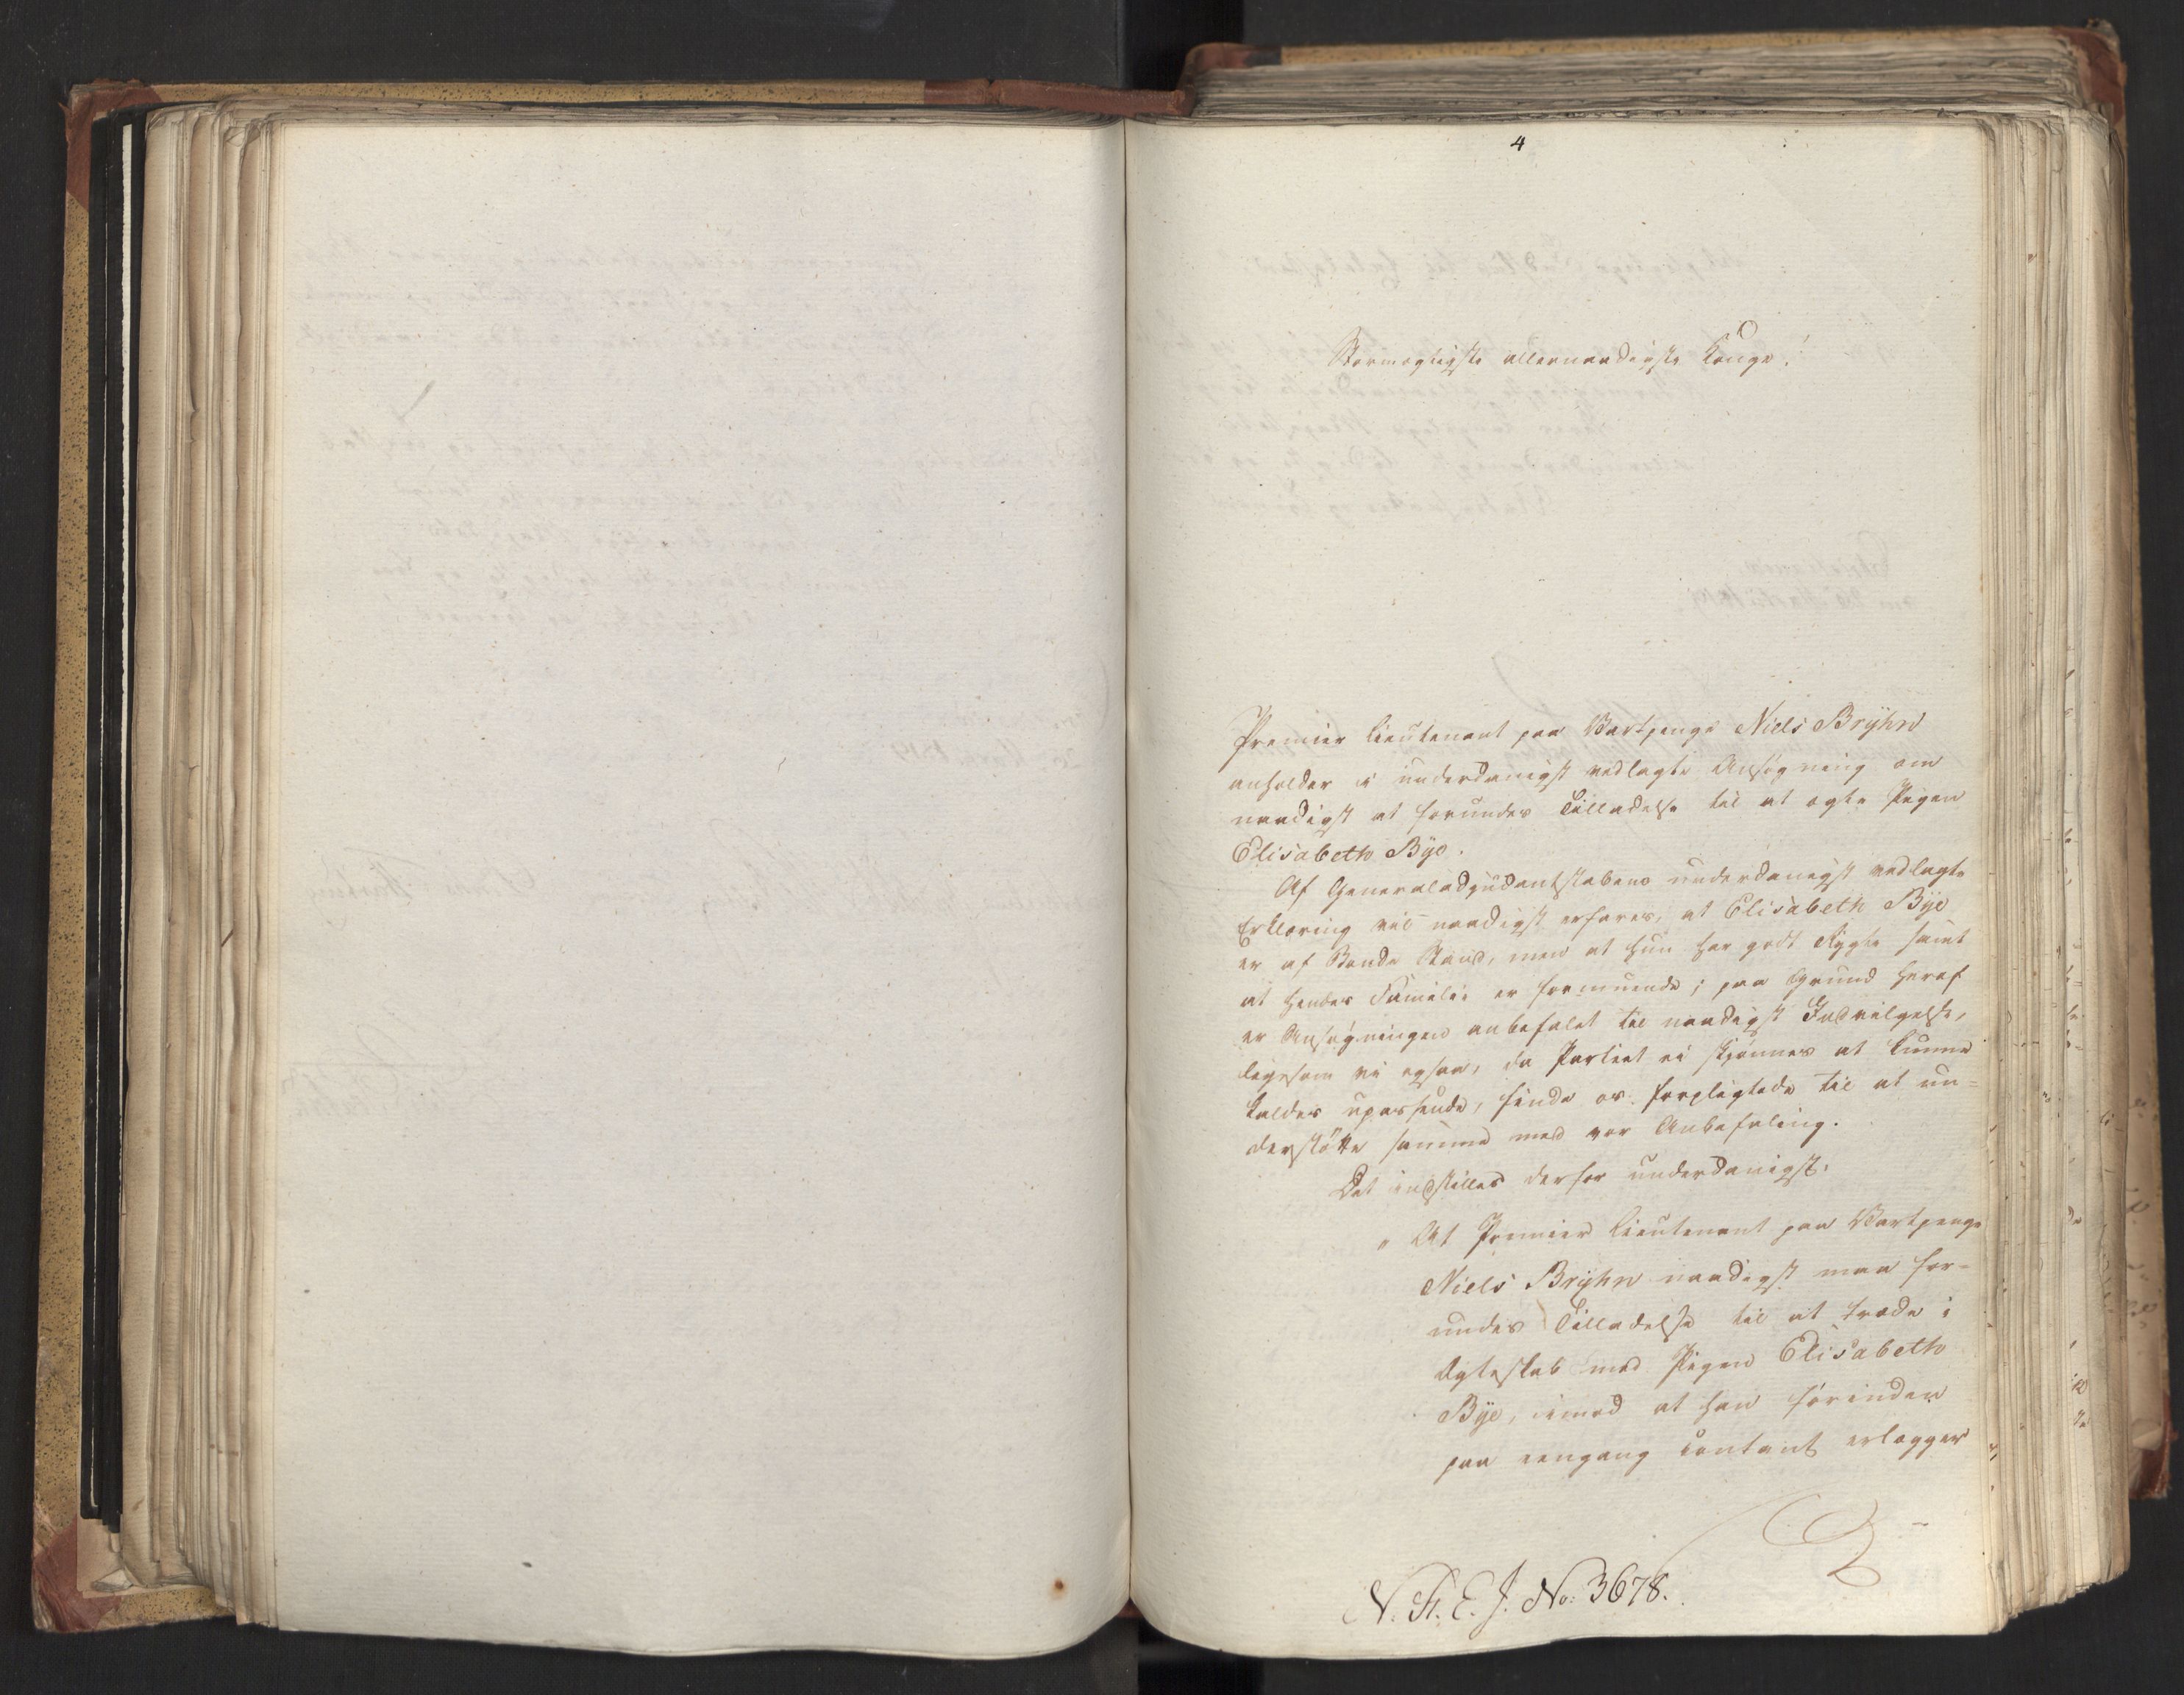 4
Stormægtigste allernaadigste Konge!
Premier Lieutenant paa Vartpenge Niels Brÿhn
anholder i underdanigst vedlagte Ansøgning om
naadigst at forundes Tilladelse til at ægte Pigen
Elisabeth Bÿe.
Af Generaladjudantstabens underdanigst vedlagte
Erklæring vil naadigst erfares, at Elisabeth Bÿe
er af Bonde Stand, men at hun har godt Rygte samt
at hendes Familie er formuende; paa Grund heraf
er Ansøgningen anbefalet til naadigst Indvilgelse,
ligesom vi ogsaa, da Partiet ei skjønnes at kunne
kaldes upassende, finde os forpligtede til at un=
derstötte samme med vor Anbefaling.
Det indstilles derfor underdanigst:
"At Premier Lieutenant paa Vartpenge
Niels Brÿhn naadigst maa for=
undes Tilladelse til at træde i
Ægteskab med Pigen Elisabeth
Bÿe, imod at han forinden
paa eengang contant erlægger
N. A. E. J. No: 3678.